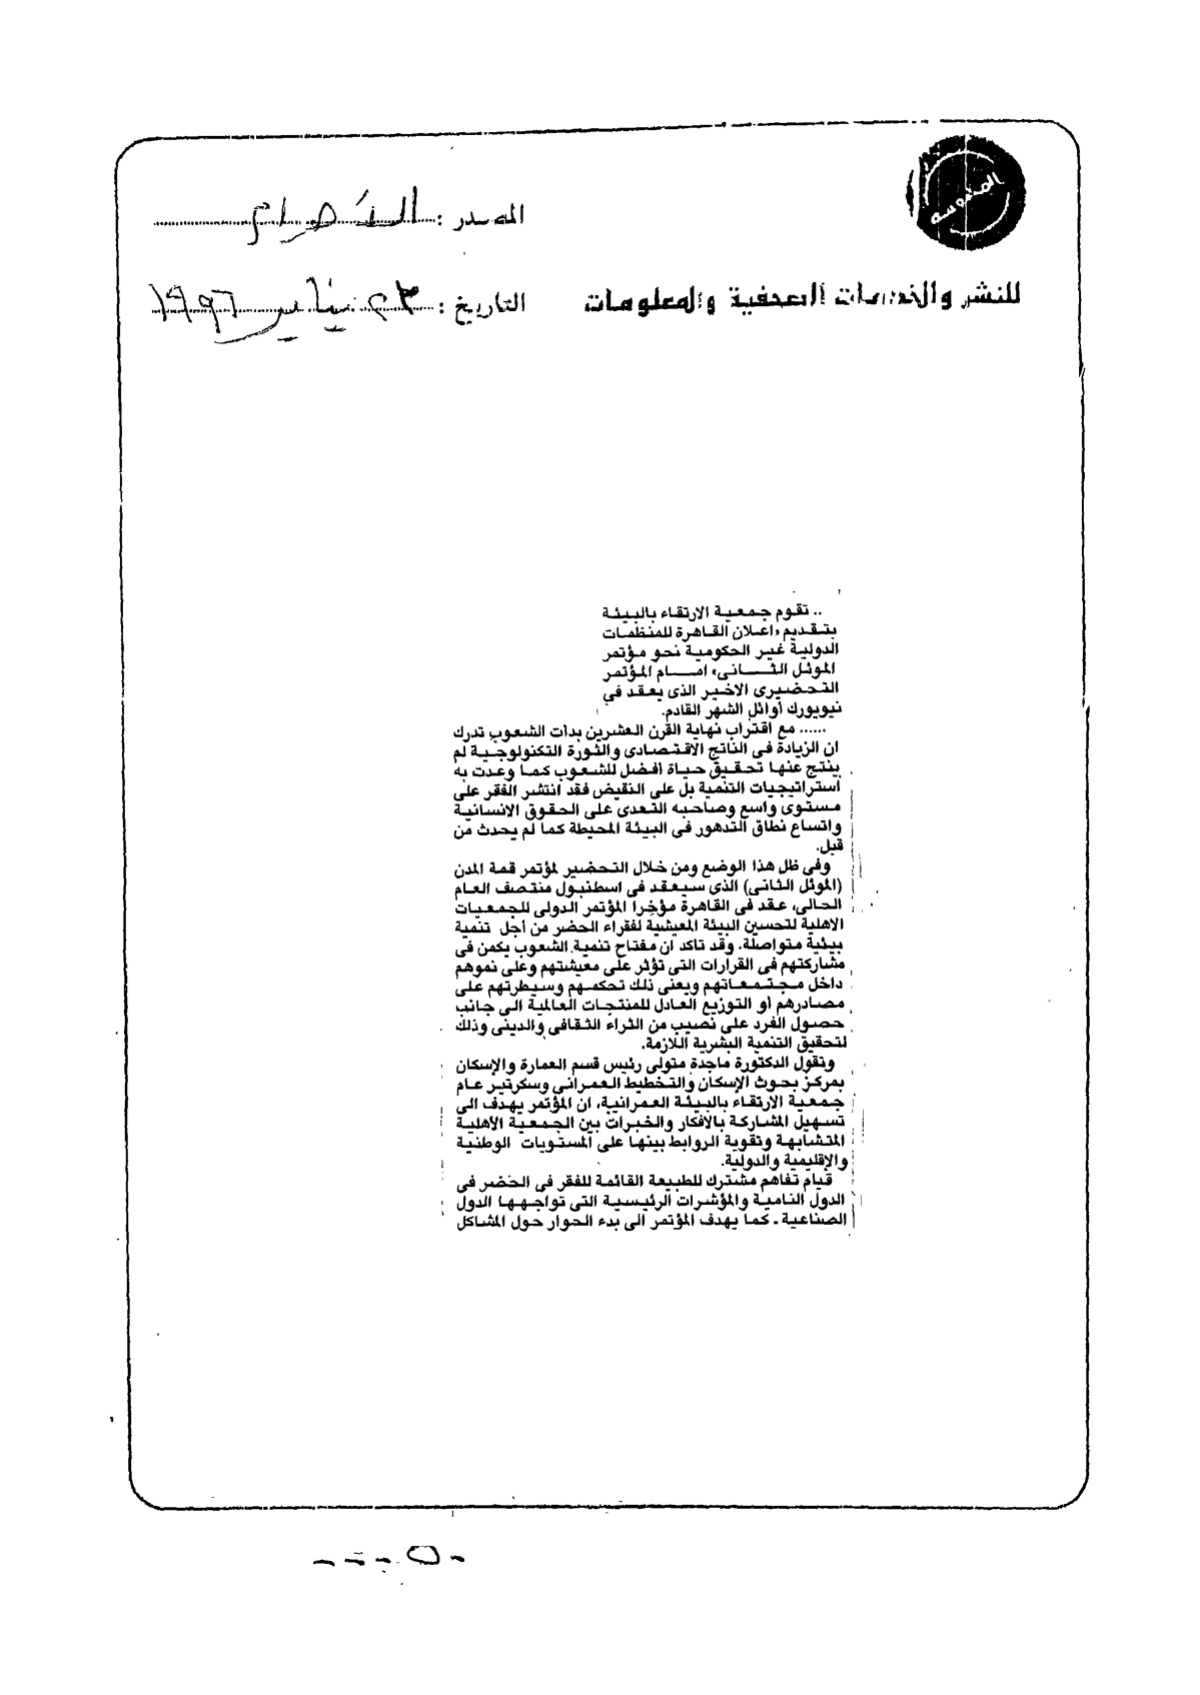 المحروسة
المصدر : الأهرام
للنشر والخدمات الصحفية والمعلومات
التاريخ : ٢٣ يناير ١٩٩٦
.. تقوم جمعية الارتقاء بالبيئة
بتقديم «اعلان القاهرة للمنظمات
الدولية غير الحكومية نحو مؤتمر
الموئل الثانى» امام المؤتمر
التحضيرى الاخير الذى يعقد في
نيويورك أوائل الشهر القادم.
...... مع اقتراب نهاية القرن العشرين بدات الشعوب تدرك
ان الزيادة فى الناتج الاقتصادى والثورة التكنولوجية لم
ينتج عنها تحقيق حياة افضل للشعوب كما وعدت به
استراتيجيات التنمية بل على النقيض فقد انتشر الفقر على
مستوى واسع وصاحبه التعدى على الحقوق الانسانية
واتساع نطاق التدهور فى البيئة المحيطة كما لم يحدث من
قبل.
وفى ظل هذا الوضع ومن خلال التحضير لمؤتمر قمة المدن
(الموئل الثانى) الذى سيعقد فى اسطنبول منتصف العام
الحالى، عقد فى القاهرة مؤخرا المؤتمر الدولى للجمعيات
الاهلية لتحسين البيئة المعيشية لفقراء الحضر من أجل تنمية
بيئية متواصلة. وقد تاكد ان مفتاح تنمية الشعوب يكمن فى
مشاركتهم فى القرارات التى تؤثر على معيشتهم وعلى نموهم
داخل مجتمعاتهم ويعنى ذلك تحكمهم وسيطرتهم على
مصادرهم او التوزيع العادل للمنتجات العالمية الى جانب
حصول الفرد على نصيب من الثراء الثقافى والدينى وذلك
لتحقيق التنمية البشرية اللازمة.
وتقول الدكتورة ماجدة متولى رئيس قسم العمارة والإسكان
بمركز بحوث الإسكان والتخطيط العمرانى وسكرتير عام
جمعية الارتقاء بالبيئة العمرانية، ان المؤتمر يهدف الى
تسهيل المشاركة بالافكار والخبرات بين الجمعية الأهلية
المتشابهة وتقوية الروابط بينها على المستويات الوطنية
والإقليمية والدولية.
قيام تفاهم مشترك للطبيعة القائمة للفقر فى الحضر فى
الدول النامية والمؤشرات الرئيسية التى تواجهها الدول
الصناعية . كما يهدف المؤتمر الى بدء الحوار حول المشاكل